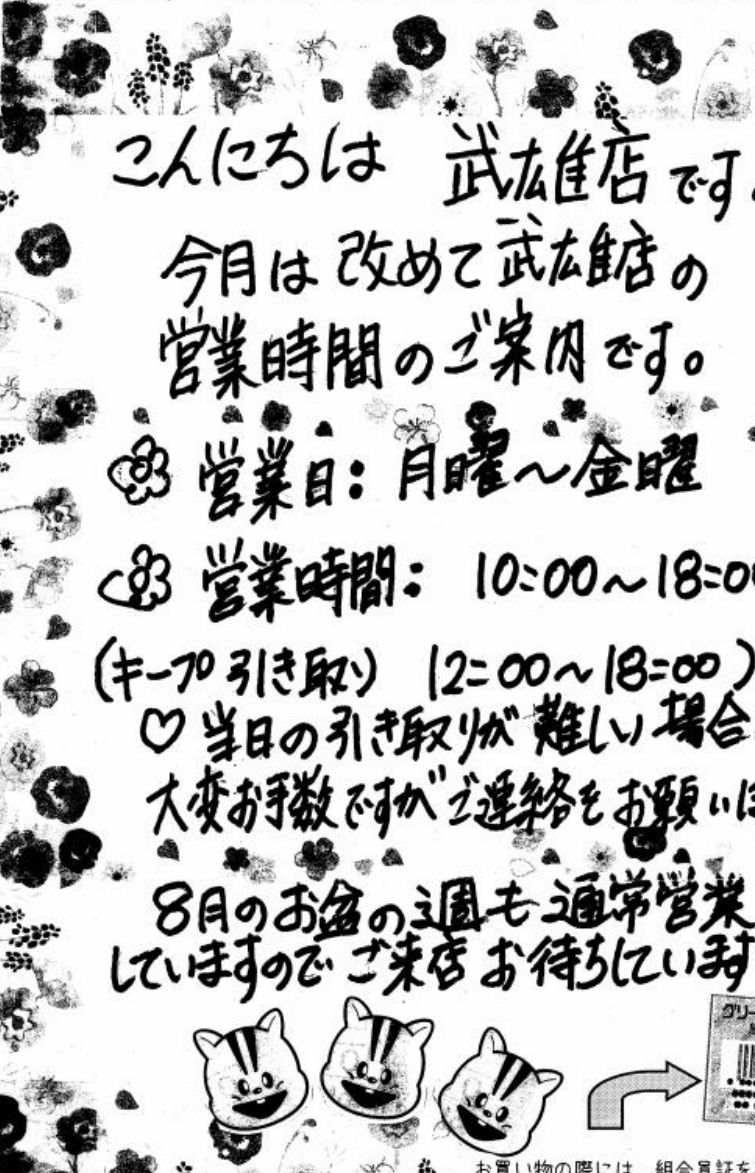 こんにちは 武雄店です。
今月は 改めて 武雄店の
営業時間のご案内です。
営業日：月曜～金曜
営業時間： 10:00～18:00
（キープ引き取り 12:00～18:00）
♡ 当日の引き取りが 難しい 場合
大変お手数ですがご連絡をお願いは
8月のお盆の週も通常営業
していますので ご来店 お待ちしています
グリー
お買い物の際には、組合員証を